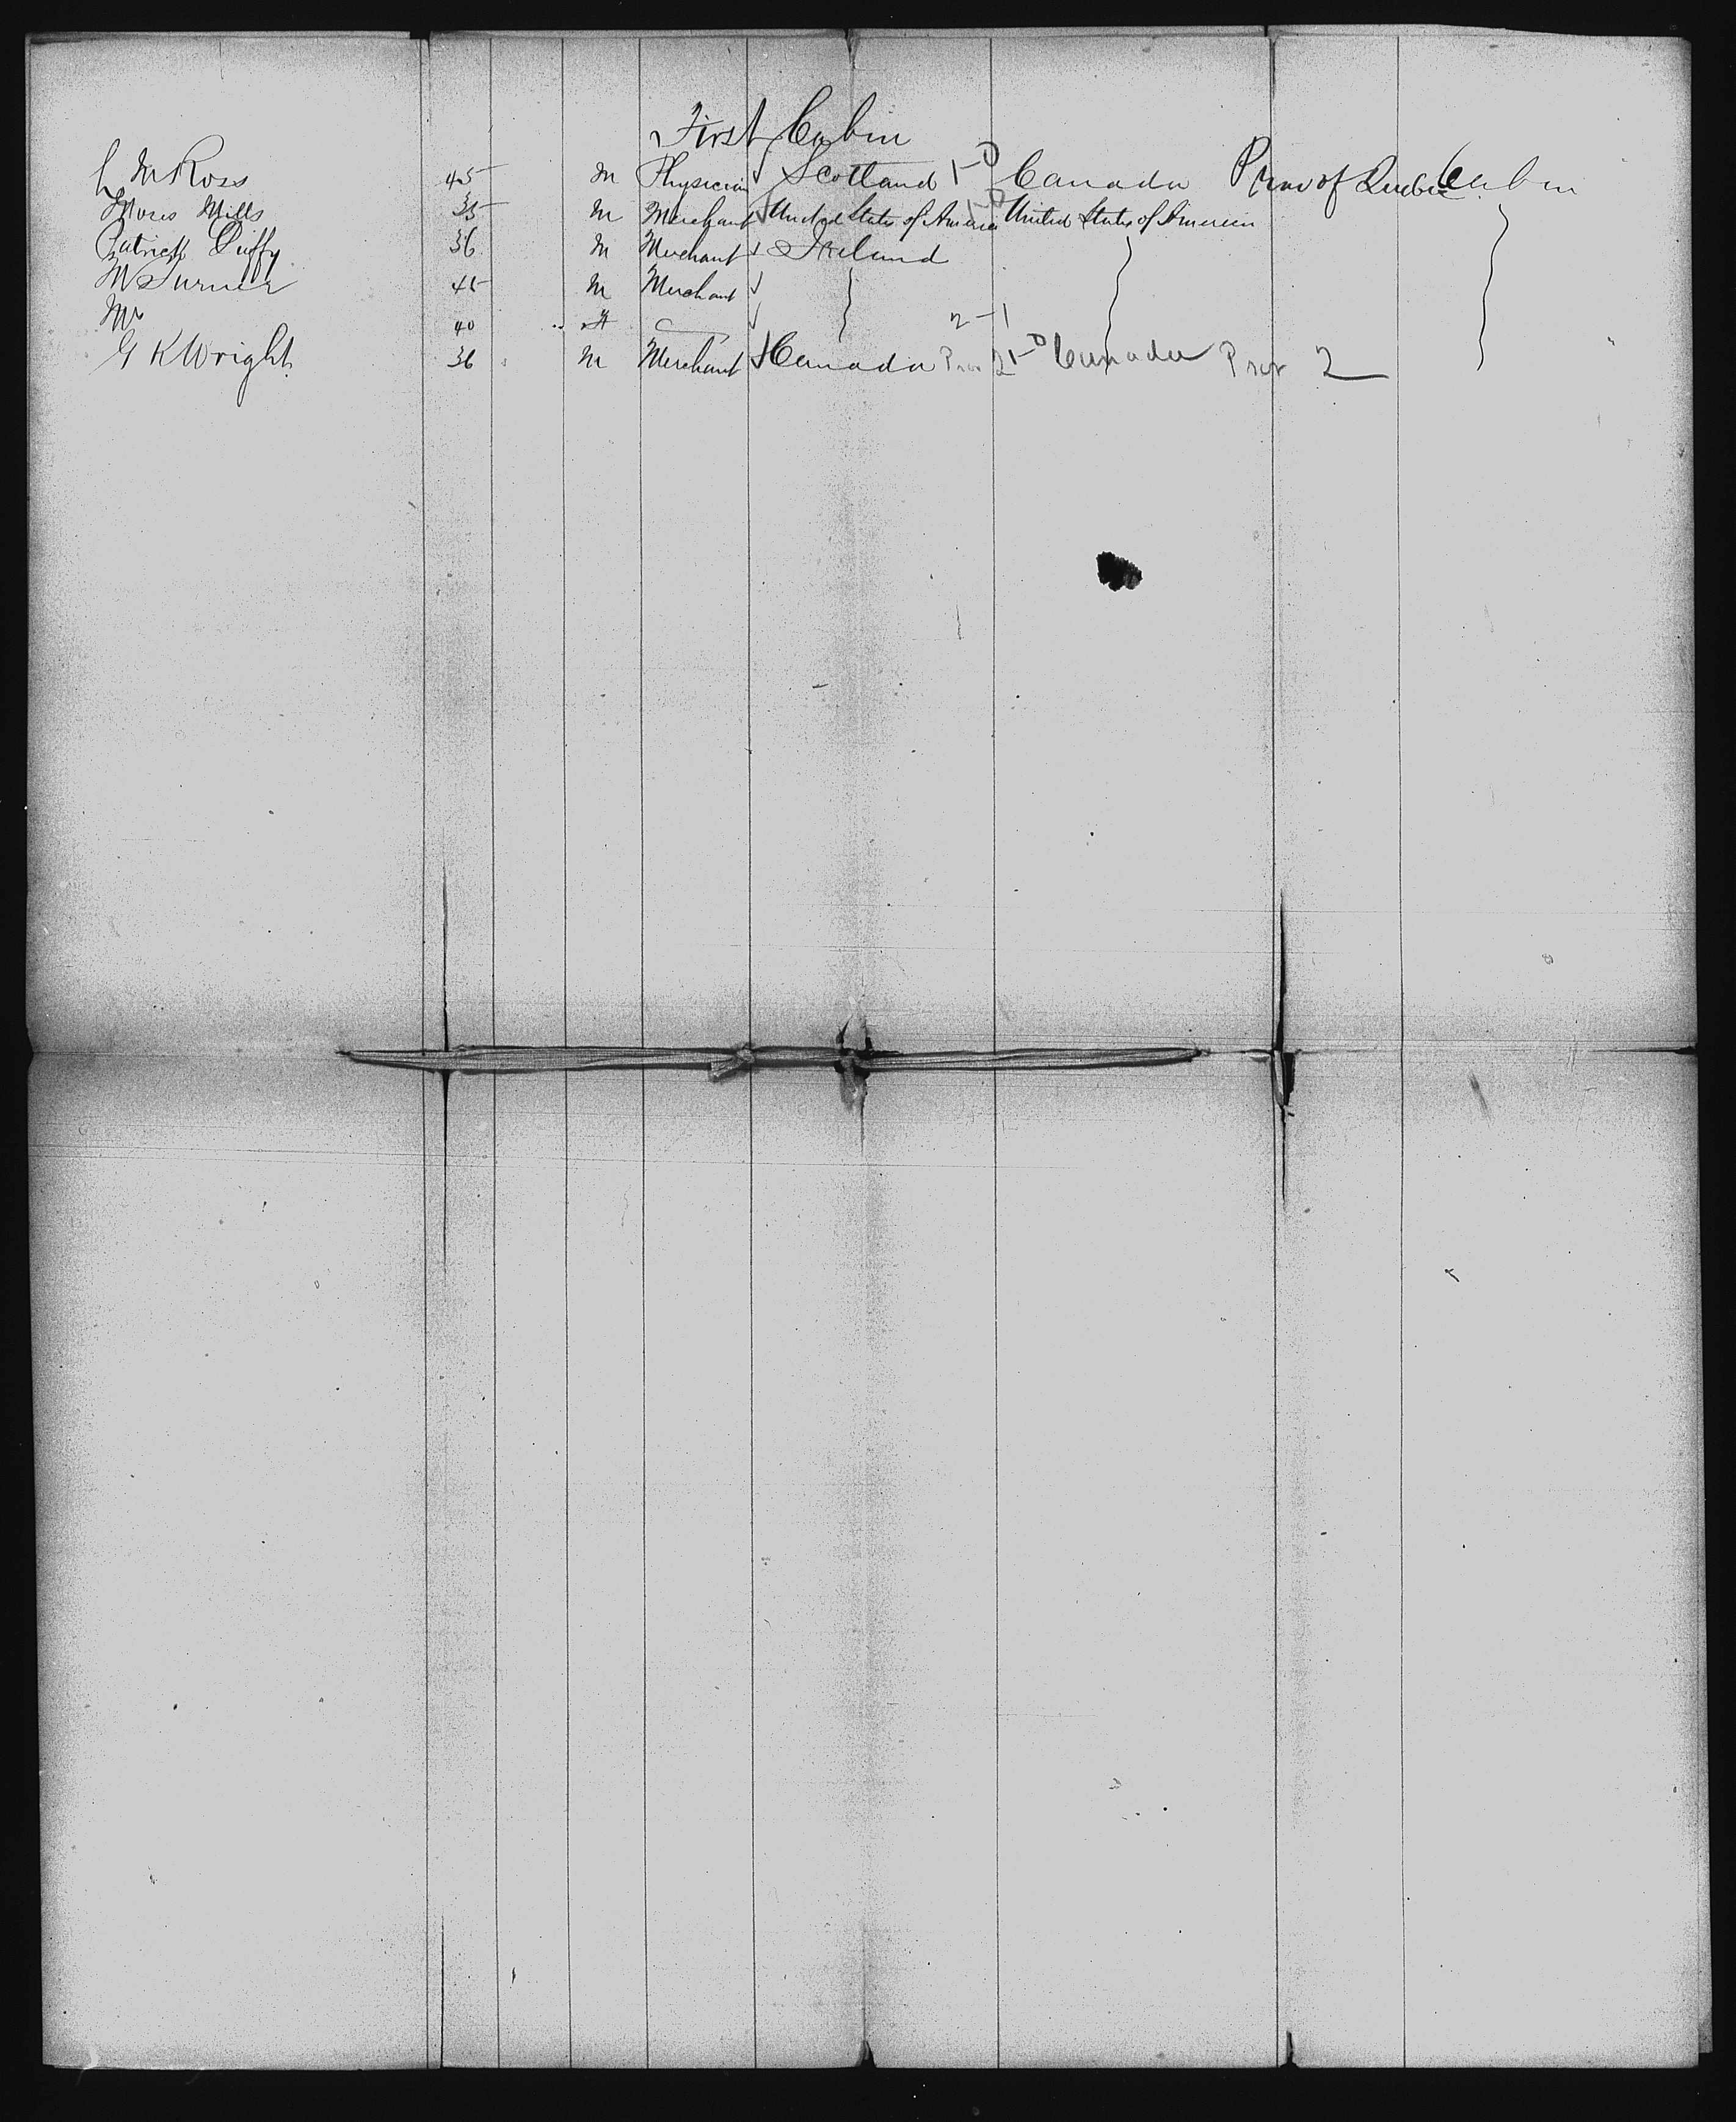 First Cabin
M Ross 45 M Physician Scotland 1-0 Canada Prov of Quebec Cabin
Moses Mills 35 M Merchant United States of America 1-0 United States of America
Patrick Duffy 36 M Merchant Ireland
M Turner 45 M Merchant
40 2-1
G K Wright 36 M Merchant Canada Prov 2 1-0 Canada Prov 2